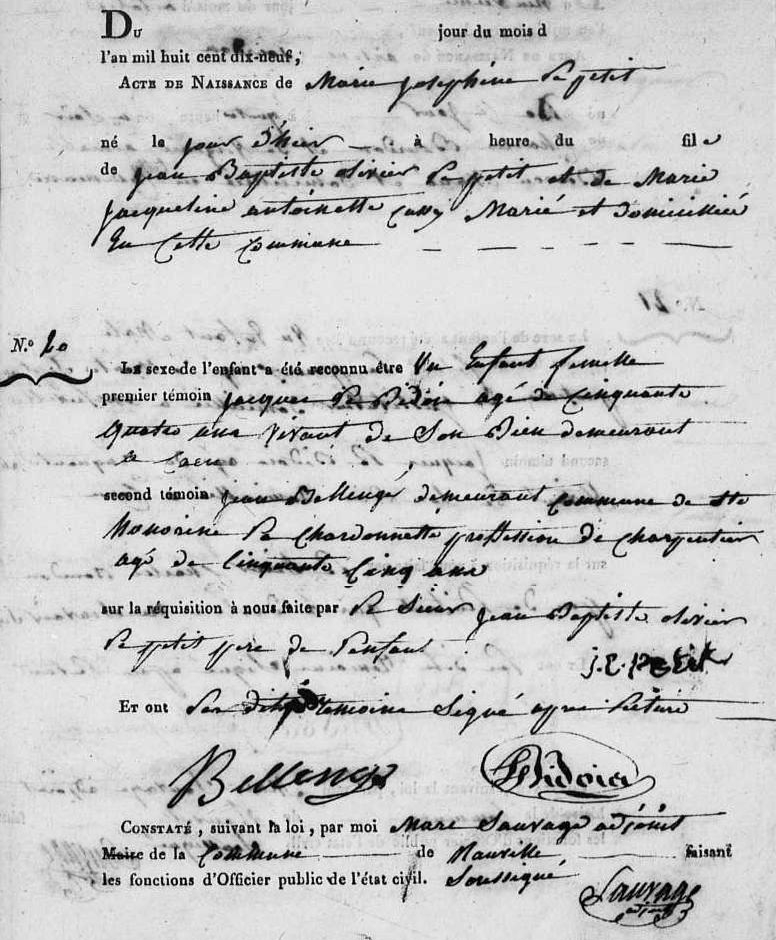 DU jour du mois d
l'an mil huit cent dix-neuf,
ACTE DE NAISSANCE de Marie Josephine Le petit
né le jour d'hier à heure du fil e
de Jean Baptiste olivier Le petit et de Marie
Jacqueline antoinette Cussy Marié et domicilié
En Cette Commune
N.º 20
Le sexe de l'enfant a été reconnu être Un Enfant femelle
premier témoin Jacques Le Bidois agé de Cinquante
quatre ans vivant de Son Bien demeurant
a Caen
second témoin Jean Bellenger demeurant Commune de Ste
Honorine La Chardonnette proffession de Charpentier
agé de Cinquante Cinq ans
sur la réquisition à nous faite par Le Sieur Jean Baptiste olivier
Le petit pere de l'enfant
ET ont Les dits temoins Signé apres Lecture
Bellenger Bidois
CONSTATÉ, suivant la loi, par moi Marc Sauvage adjoint
Maire de la Commune de Rauville faisant
les fonctions d'Officier public de l'état civil. Soussigné
Sauvage
adjoint